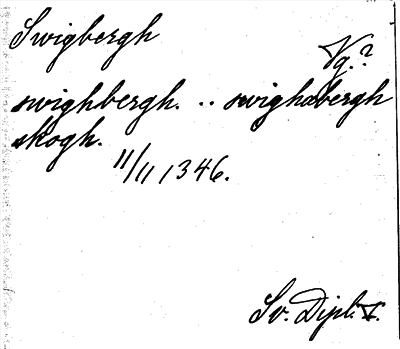 Swigbergh
Vg.?
swighbergh. .. swighabergh
skogh.
11/11 1346.
Sv. Dipl. V.